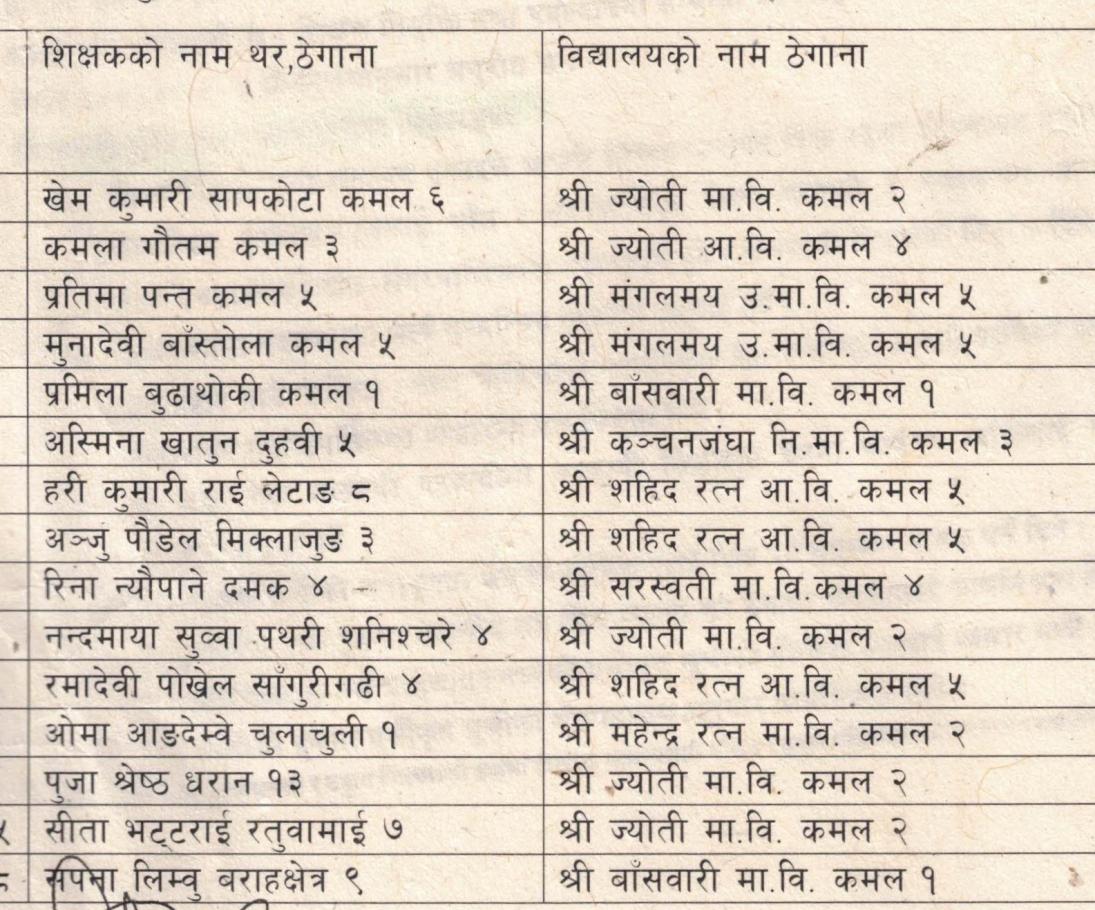 शिक्षकको नाम थर,ठेगाना विद्यालयको नाम ठेगाना
खेम कुमारी सापकोटा कमल ६ श्री ज्योती मा.वि. कमल २
कमला गौतम कमल ३ श्री ज्योती आ.वि. कमल ४
प्रतिमा पन्त कमल ५ श्री मंगलमय उ.मा.वि. कमल ५
मुनादेवी बाँस्तोला कमल ५ श्री मंगलमय उ.मा.वि. कमल ५
प्रमिला बुढाथोकी कमल १ श्री बाँसवारी मा.वि. कमल १
अस्मिना खातुन दुहवी ५ श्री कञ्चनजंघा नि.मा.वि. कमल ३
हरी कुमारी राई लेटाङ ८ श्री शहिद रत्न आ.वि. कमल ५
अञ्जु पौडेल मिक्लाजुङ ३ श्री शहिद रत्न आ.वि. कमल ५
रिना न्यौपाने दमक ४ श्री सरस्वती मा.वि.कमल ४
नन्दमाया सुव्वा पथरी शनिश्चरे ४ श्री ज्योती मा.वि. कमल २
रमादेवी पोखेल साँगुरीगढी ४ श्री शहिद रत्न आ.वि. कमल ५
ओमा आङदेम्वे चुलाचुली १ श्री महेन्द्र रत्न मा.वि. कमल २
पुजा श्रेष्ठ धरान १३ श्री ज्योती मा.वि. कमल २
सीता भट्टराई रतुवामाई ७ श्री ज्योती मा.वि. कमल २
सपिना लिम्वु बराहक्षेत्र ९ श्री बाँसवारी मा.वि. कमल १